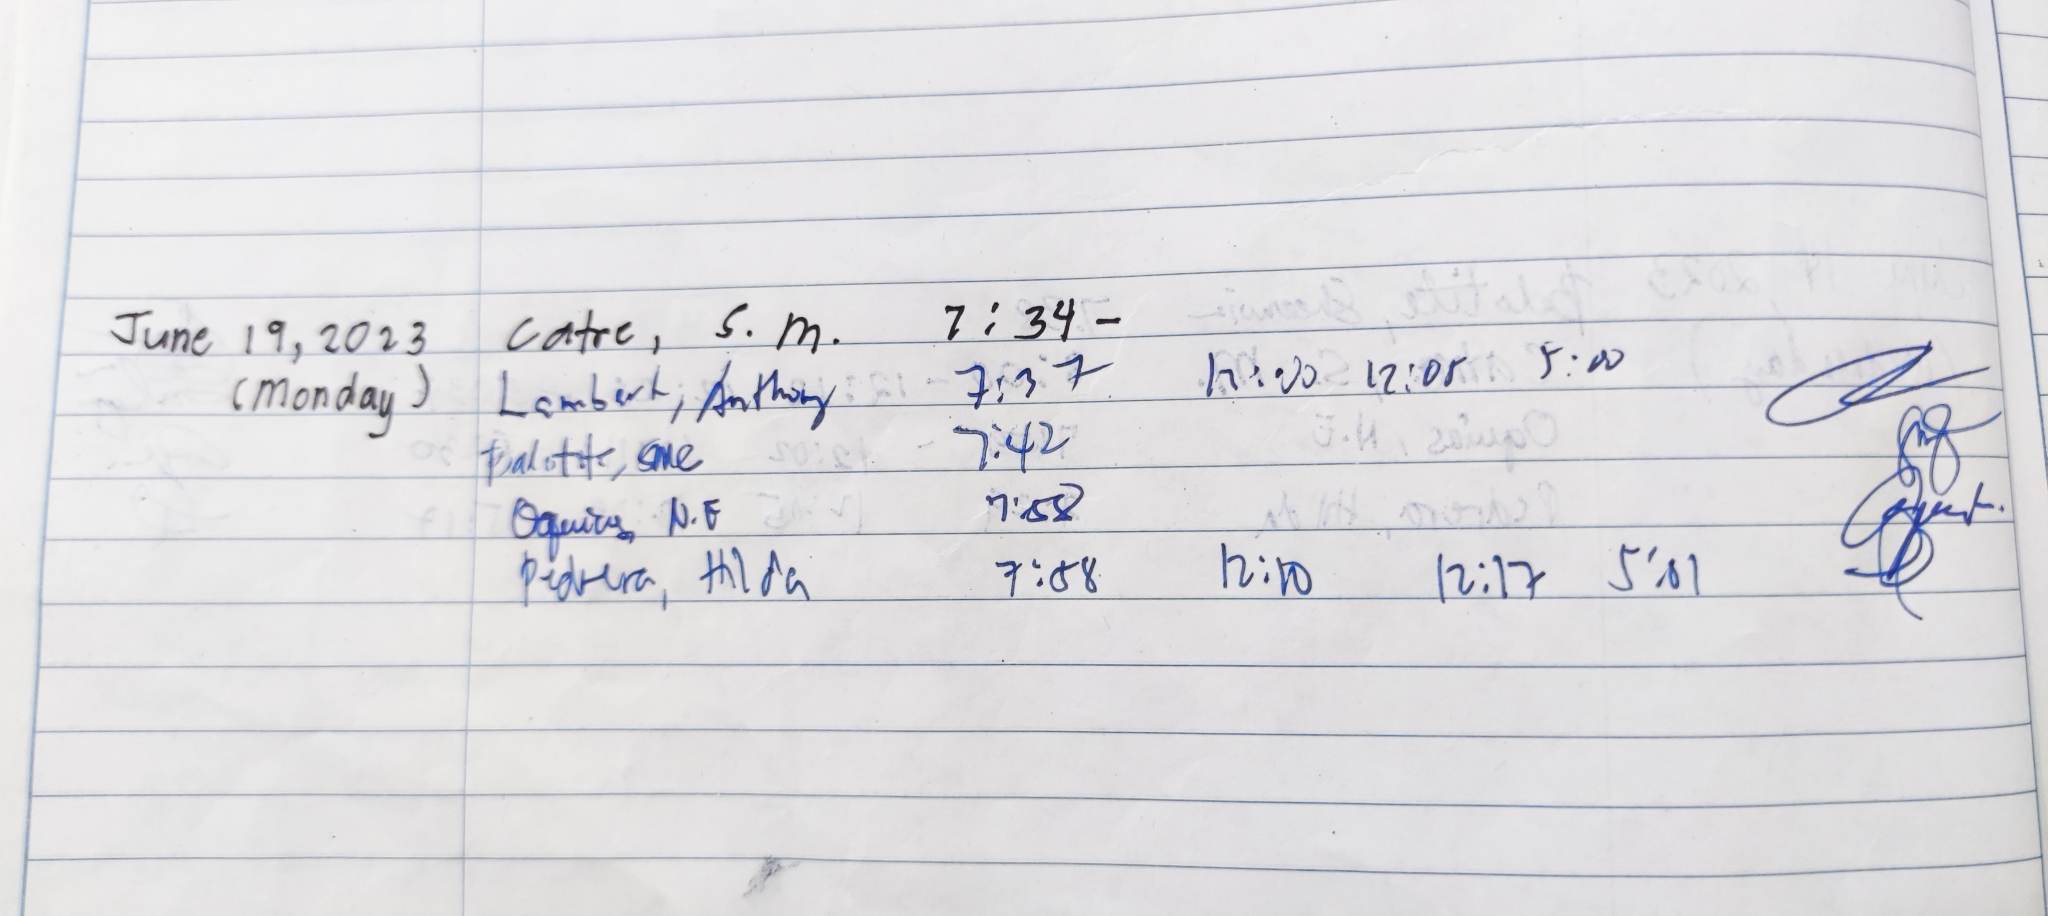 June 19, 2023 Catre, S. M. 7:34 -
(Monday) Lambert, Anthony 7:37 12:00 12:05 5:00
Balotite, SME 7:42
Oquias, N.E 7:58
Pedrera, Hilda 7:58 12:10 12:17 5:01